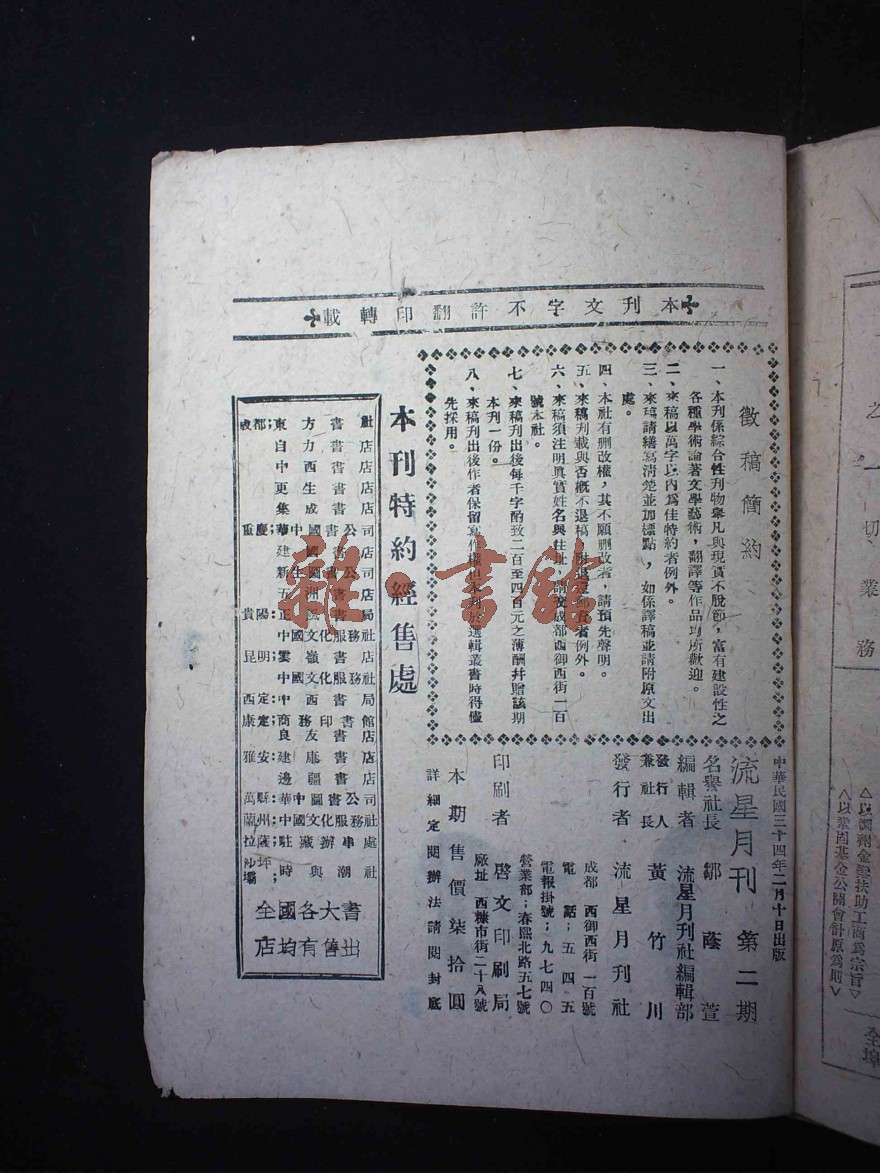 本刊文字不許翻印轉載
徵稿簡約
一、本刊係綜合性刊物舉凡與現實不脫節，富有建設性之
各種學術論著文學藝術，翻譯等作品均所歡迎。
二、來稿以萬字以內為佳特約者例外。
三、來稿請繕寫清楚並加標點，如係譯稿並請附原文出
處。
四、本社有刪改權，其不願刪改者，請預先聲明。
五、來稿刊載與否概不退稿，附退郵資者例外。
六、來稿須注明真實姓名與住址，請交成都西御西街一百
號本社。
七、來稿刊出後每千字酌致二百至四百元之薄酬并贈該期
本刊一份。
八、來稿刊出後作者保留寫作權但本刊於選輯叢書時得儘
先採用。
中華民國三十四年二月十日出版
流星月刊 第二期
名譽社長 鄒蔭萱
編輯者 流星月刊社編輯部
發行人
兼社長 黃竹川
發行者 流星月刊社
成都 西御西街一百號
電話；五四五
電報掛號；九七四〇
印刷者 啓文印刷局
營業部；春熙北路五七號
廠址 西糠市街二十八號
本期售價柒拾圓
詳細定閱辦法請閱封底
本刊特約經售處
成都；東方書社
自力書店
中西書店
更生書店
集成書店
重慶；華中圖書公司
建國書店
新生圖書公司
五洲書店
貴陽：正書局
中國文化服務社
昆明；雲嶺書店
中國文化服務社
西定：中西書局
康定；商務印書館
良友書店
雅安：建康書店
邊疆書店
萬縣：華中圖書公司
蘭州：中國文化服務社
拉薩；中駐藏辦事處
沙坪壩；時與潮社
全國各大書
店均有售出
雜·書館
之一切業務
△以調劑金融扶助工商為宗旨▽
△以鞏固基金公開會計原為則▽
全埠